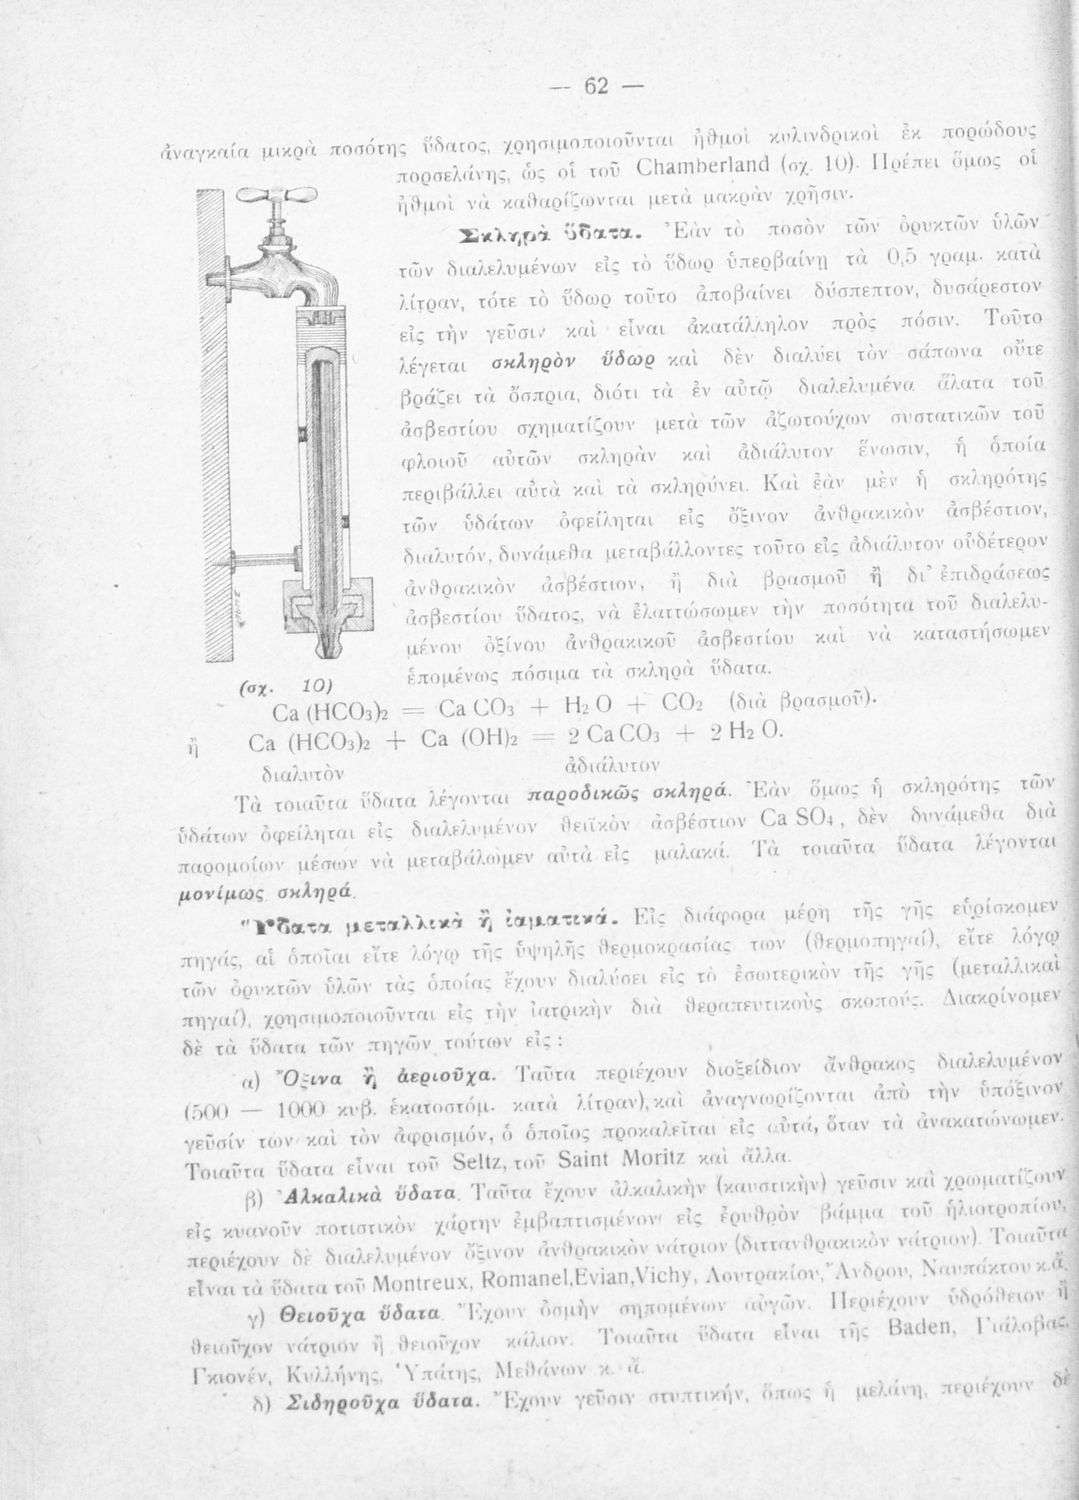 — 62 —
ἀναγκαία μικρὰ ποσότης ὕδατος, χρησιμοποιοῦνται ἠθμοὶ κυλινδρικοὶ ἐκ πορώδους
πορσελάνης, ὡς οἱ τοῦ Chamberland (σχ. 10). Πρέπει ὅμως οἱ
ἠθμοὶ νὰ καθαρίζωνται μετὰ μακρὰν χρῆσιν.
Σκληρὰ ὕδατα. Ἐὰν τὸ ποσὸν τῶν ὀρυκτῶν ὑλῶν
τῶν διαλελυμένων εἰς τὸ ὕδωρ ὑπερβαίνῃ τὰ 0,5 γραμ. κατὰ
λίτραν, τότε τὸ ὕδωρ τοῦτο ἀποβαίνει δύσπεπτον, δυσάρεστον
εἰς τὴν γεῦσιν καὶ εἶναι ἀκατάλληλον πρὸς πόσιν. Τοῦτο
λέγεται σκληρὸν ὕδωρ καὶ δὲν διαλύει τὸν σάπωνα οὔτε
βράζει τὰ ὄσπρια, διότι τὰ ἐν αὐτῷ διαλελυμένα ἅλατα τοῦ
ἀσβεστίου σχηματίζουν μετὰ τῶν ἀζωτούχων συστατικῶν τοῦ
φλοιοῦ αὐτῶν σκληρὰν καὶ ἀδιάλυτον ἕνωσιν, ἡ ὁποία
περιβάλλει αὐτὰ καὶ τὰ σκληρύνει. Καὶ ἐὰν μὲν ἡ σκληρότης
τῶν ὑδάτων ὀφείληται εἰς ὄξινον ἀνθρακικὸν ἀσβέστιον,
διαλυτόν, δυνάμεθα μεταβάλλοντες τοῦτο εἰς ἀδιάλυτον οὐδέτερον
ἀνθρακικὸν ἀσβέστιον, ἢ διὰ βρασμοῦ ἢ δι' ἐπιδράσεως
ἀσβεστίου ὕδατος, νὰ ἐλαττώσωμεν τὴν ποσότητα τοῦ διαλελυ-
μένου ὀξίνου ἀνθρακικοῦ ἀσβεστίου καὶ νὰ καταστήσωμεν
ἑπομένως πόσιμα τὰ σκληρὰ ὕδατα.
(σχ. 10)
Ca (HCO3)2 = Ca CO3 + H2 O + CO2 (διὰ βρασμοῦ).
ἢ Ca (HCO3)2 + Ca (OH)2 = 2 Ca CO3 + 2 H2 O.
διαλυτὸν ἀδιάλυτον
Τὰ τοιαῦτα ὕδατα λέγονται παροδικῶς σκληρά. Ἐὰν ὅμως ἡ σκληρότης τῶν
ὑδάτων ὀφείληται εἰς διαλελυμένον θειϊκὸν ἀσβέστιον Ca SO4, δὲν δυνάμεθα διὰ
παρομοίων μέσων νὰ μεταβάλωμεν αὐτὰ εἰς μαλακά. Τὰ τοιαῦτα ὕδατα λέγονται
μονίμως σκληρά.
Ὕδατα μεταλλικὰ ἢ ἰαματικά. Εἰς διάφορα μέρη τῆς γῆς εὑρίσκομεν
πηγάς, αἱ ὁποῖαι εἴτε λόγῳ τῆς ὑψηλῆς θερμοκρασίας των (θερμοπηγαί), εἴτε λόγῳ
τῶν ὀρυκτῶν ὑλῶν τὰς ὁποίας ἔχουν διαλύσει εἰς τὸ ἐσωτερικὸν τῆς γῆς (μεταλλικαὶ
πηγαί), χρησιμοποιοῦνται εἰς τὴν ἰατρικὴν διὰ θεραπευτικοὺς σκοπούς. Διακρίνομεν
δὲ τὰ ὕδατα τῶν πηγῶν τούτων εἰς :
α) Ὄξινα ἢ ἀεριοῦχα. Ταῦτα περιέχουν διοξείδιον ἄνθρακος διαλελυμένον
(500 — 1000 κυβ. ἑκατοστόμ. κατὰ λίτραν), καὶ ἀναγνωρίζονται ἀπὸ τὴν ὑπόξινον
γεῦσίν των καὶ τὸν ἀφρισμόν, ὁ ὁποῖος προκαλεῖται εἰς αὐτά, ὅταν τὰ ἀνακατώνωμεν.
Τοιαῦτα ὕδατα εἶναι τοῦ Seltz, τοῦ Saint Moritz καὶ ἄλλα.
β) Ἀλκαλικὰ ὕδατα. Ταῦτα ἔχουν ἀλκαλικὴν (καυστικὴν) γεῦσιν καὶ χρωματίζουν
εἰς κυανοῦν ποτιστικὸν χάρτην ἐμβαπτισμένον εἰς ἐρυθρὸν βάμμα τοῦ ἡλιοτροπίου,
περιέχουν δὲ διαλελυμένον ὄξινον ἀνθρακικὸν νάτριον (διττανθρακικὸν νάτριον). Τοιαῦτα
εἶναι τὰ ὕδατα τοῦ Montreux, Romanel, Evian, Vichy, Λουτρακίου, Ἄνδρου, Ναυπάκτου κ.ἄ.
γ) Θειοῦχα ὕδατα. Ἔχουν ὀσμὴν σηπομένων αὐγῶν. Περιέχουν ὑδρόθειον ἢ
θειοῦχον νάτριον ἢ θειοῦχον κάλιον. Τοιαῦτα ὕδατα εἶναι τῆς Baden, Γιάλοβας,
Γκιονέν, Κυλλήνης, Ὑπάτης, Μεθάνων κ. ἄ.
δ) Σιδηροῦχα ὕδατα. Ἔχουν γεῦσιν στυπτικήν, ὅπως ἡ μελάνη, περιέχουν δὲ